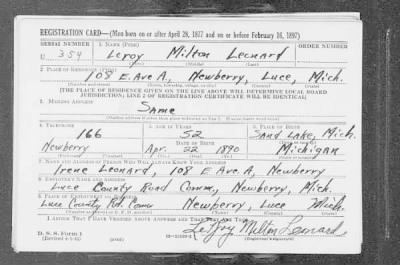 REGISTRATION CARD—(Men born on or after April 28, 1877 and on or before February 16, 1897)
SERIAL NUMBER 1. NAME (Print) ORDER NUMBER
U 354 Leroy Milton Leonard
(First) (Middle) (Last)
2. PLACE OF RESIDENCE (Print)
108 E. Ave A, Newberry, Luce, Mich.
(Number and street) (Town, township, village, or city) (County) (State)
[THE PLACE OF RESIDENCE GIVEN ON THE LINE ABOVE WILL DETERMINE LOCAL BOARD
JURISDICTION; LINE 2 OF REGISTRATION CERTIFICATE WILL BE IDENTICAL]
3. MAILING ADDRESS
Same
(Mailing address if other than place indicated on line 2. If same insert word same)
4. TELEPHONE 5. AGE IN YEARS 6. PLACE OF BIRTH
166 52 Sand Lake, Mich.
DATE OF BIRTH
Newberry Apr. 22 1890 Michigan
7. NAME AND ADDRESS OF PERSON WHO WILL ALWAYS KNOW YOUR ADDRESS
Irene Leonard, 108 E. Ave A, Newberry
8. EMPLOYER'S NAME AND ADDRESS
Luce County Road Comm, Newberry, Mich.
9. PLACE OF EMPLOYMENT OR BUSINESS
Luce County Rd. Comm Newberry, Luce Mich.
(Number and street or R. F. D. number) (Town) (County) (State)
I AFFIRM THAT I HAVE VERIFIED ABOVE ANSWERS AND THAT THEY ARE TRUE.
D. S. S. Form 1
LeRoy Milton Leonard
(Registrant's signature)